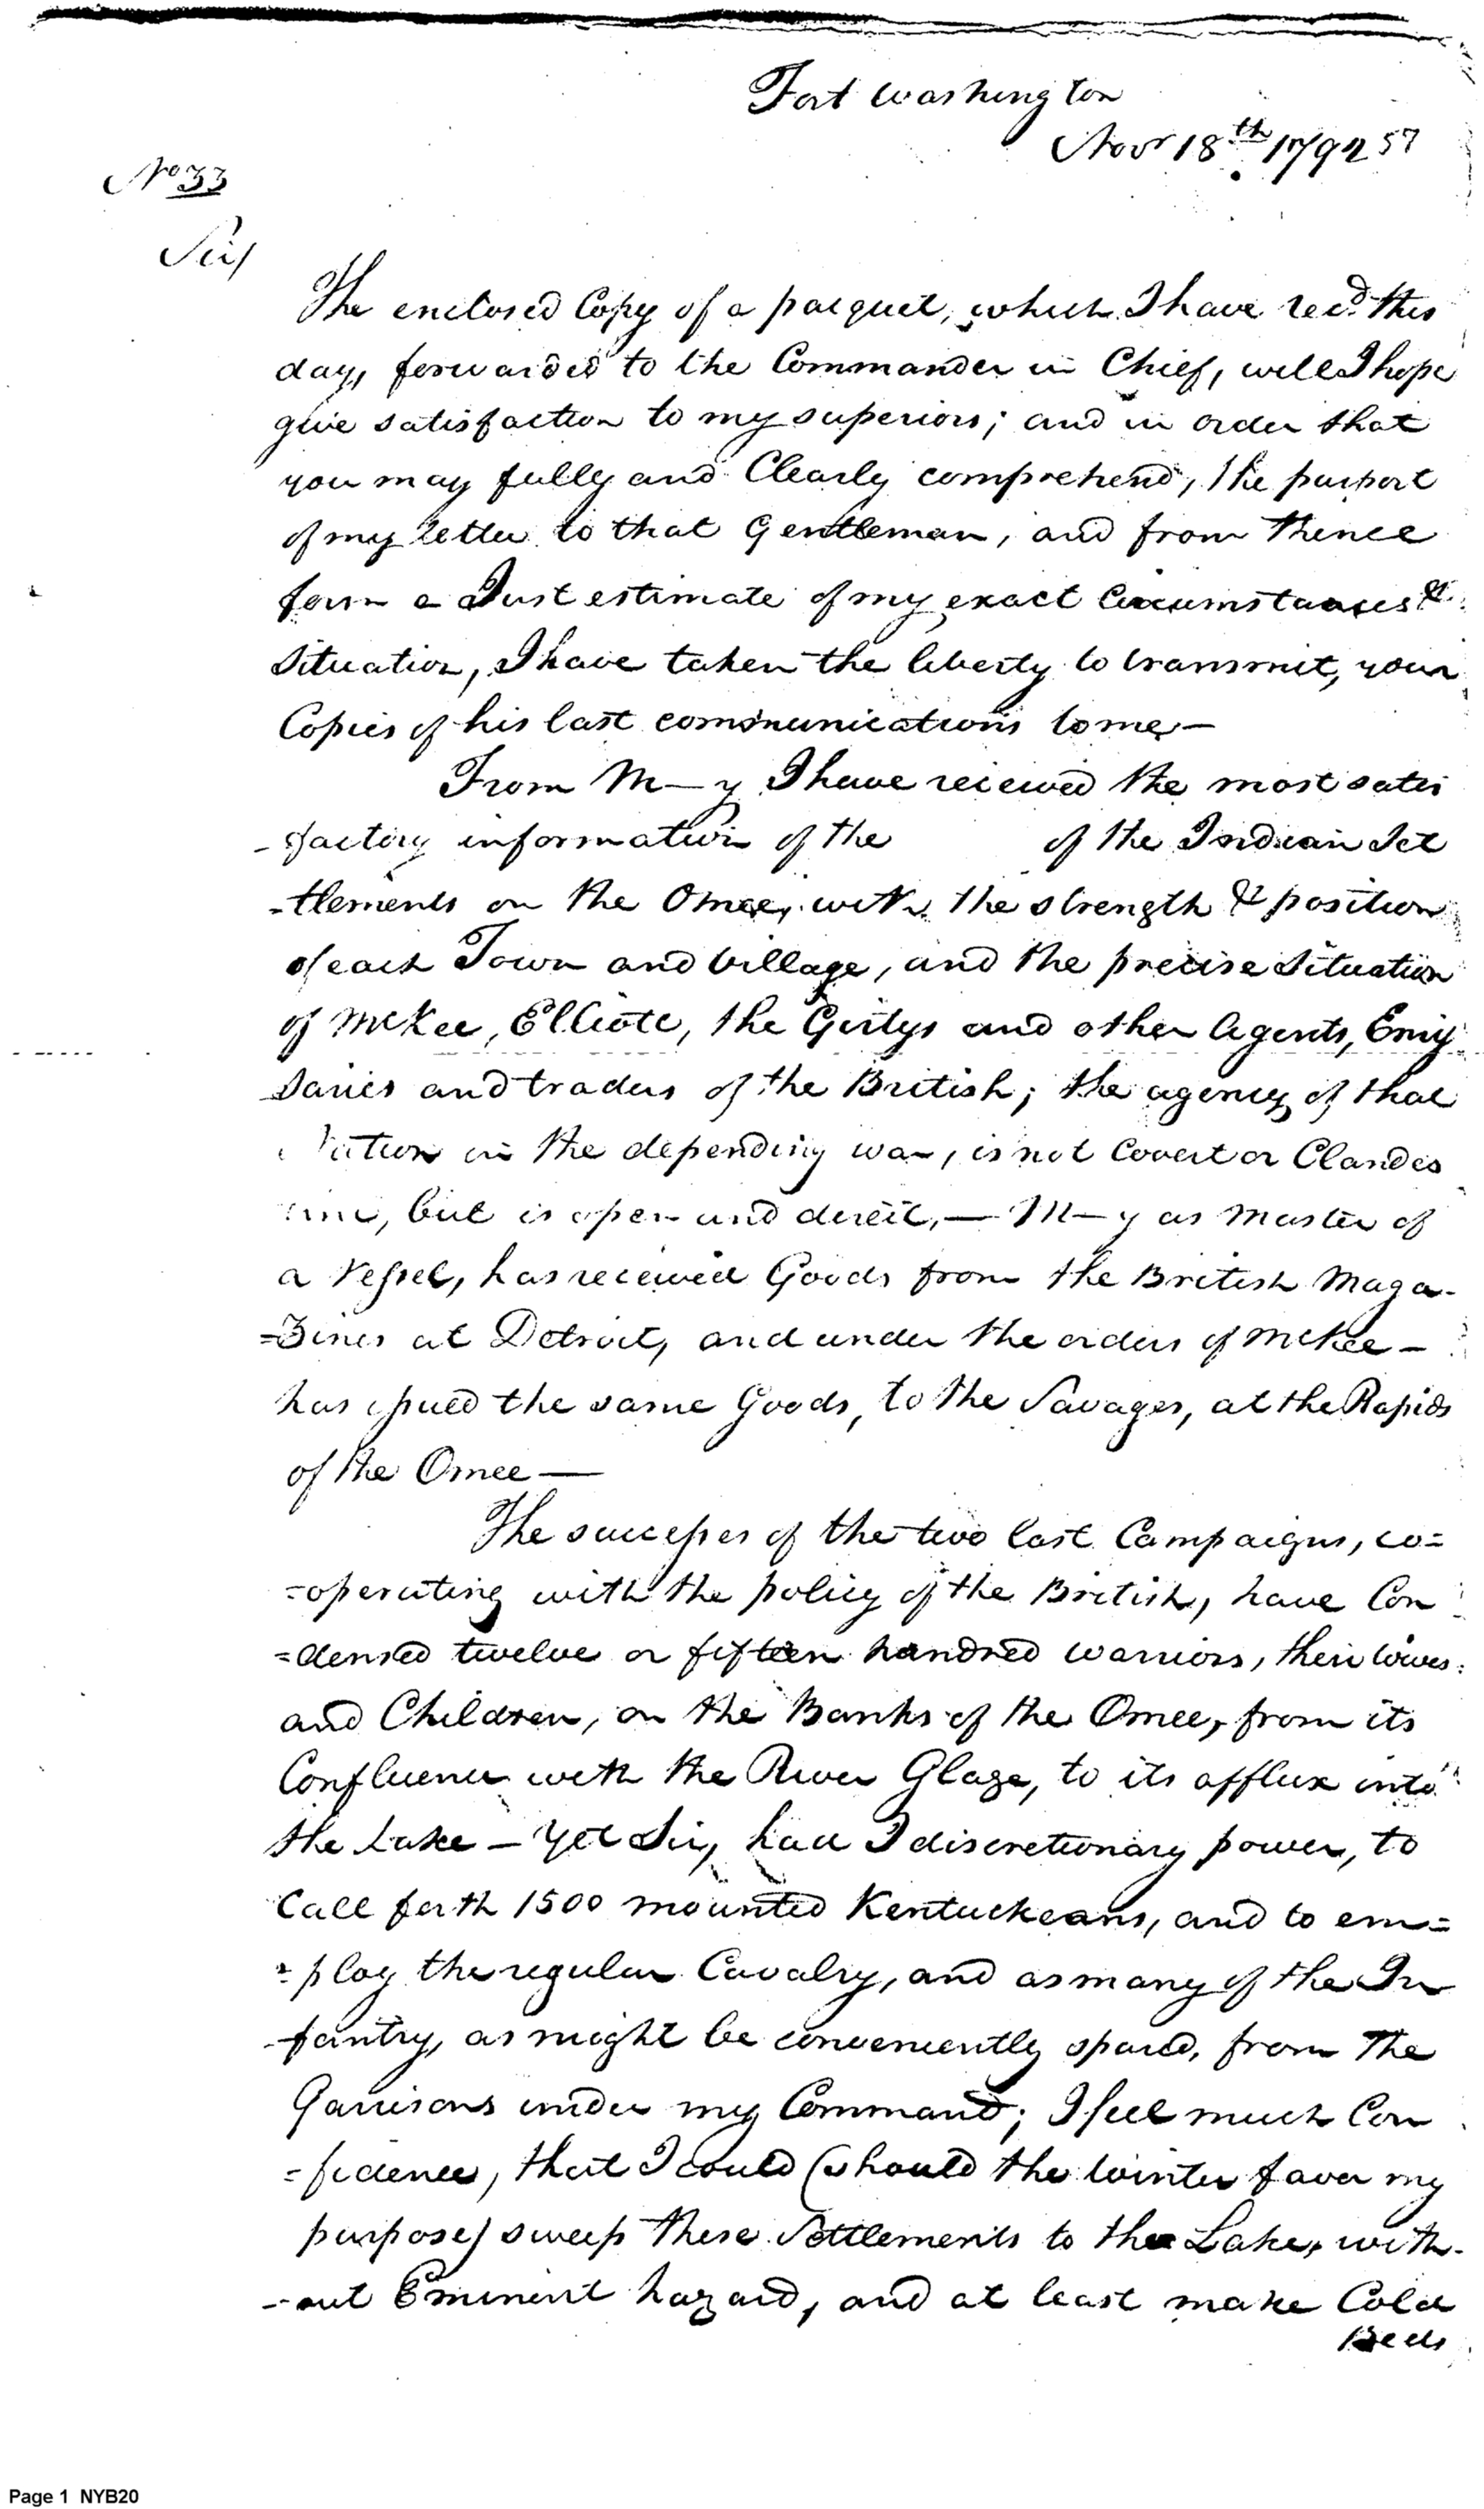 Fort Washington
Novr 18th 1792 57
No 33
Sir/
The enclosed Copy of a pacquet, which I have recd. this
day, forwarded to the Commander in Chief, will I hope
give satisfaction to my superiors; and in order that
you may fully and Clearly comprehend, the purport
of my letter to that Gentleman, and from thence
form a Just estimate of my exact Circumstances &
Situation, I have taken the liberty to transmit, your
Copies of his last communications to me—
From M—y I have received the most satis
-factory information of the of the Indian Set
-tlements on the Omee, with the strength & position
of each Town and Village, and the precise Situation
of McKee, Elliott, the Girtys and other Agents, Emis
saries and traders of the British; the agency of that
Nation in the depending war, is not Covert or Clandes
tine, but is open and direct,— M—y as Master of
a Vessel, has received Goods from the British Maga-
=Zines at Detroit, and under the orders of McKee—
has issued the same Goods, to the Savages, at the Rapids
of the Omee—
The successes of the two last Campaigns, co=
=operating with the policy of the British, have Con
=densed twelve or fifteen hundred warriors, their wives
and Children, on the Banks of the Omee, from its
Confluence with the River Glaze, to its afflux into
the Lake — Yet Sir, had I discretionary power, to
Call forth 1500 mounted Kentuckeans, and to em=
=ploy the regular Cavalry, and as many of the In
-fantry, as might be conveniently spared, from the
Garrisons under my Command; I feel much Con
=fidence, that I could (should the Winter favor my
purpose) sweep these Settlements to the Lake, with-
-out Eminent hazard, and at least make Cold
Beds
Page 1 NYB20